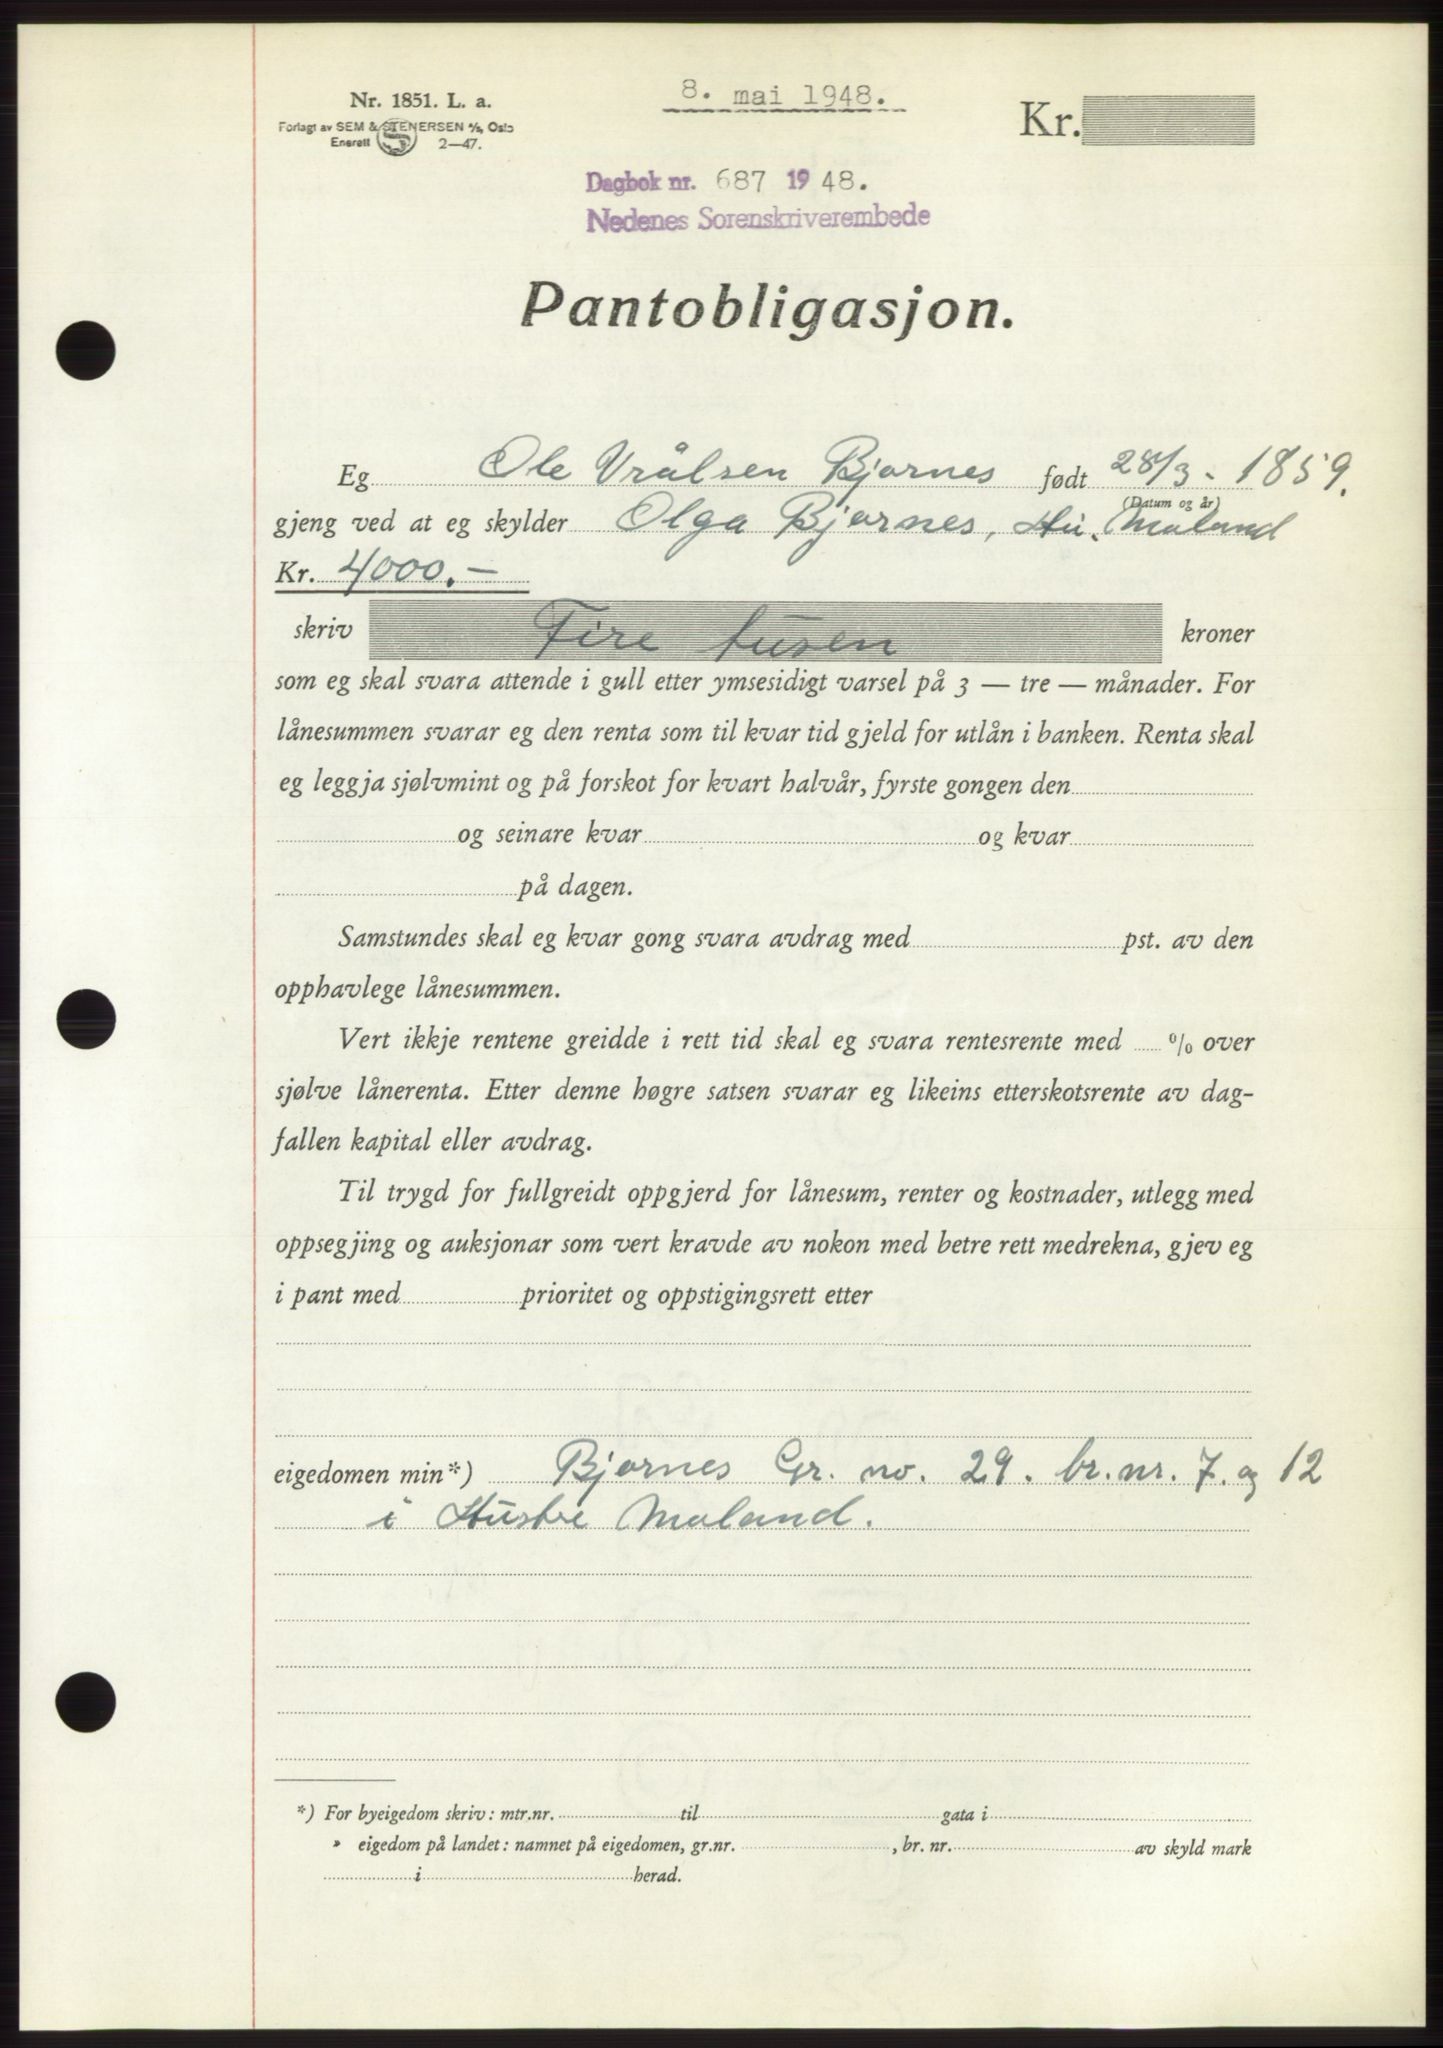 Nr. 1851. L. a.
Forlagt av SEM & STENERSEN A/S, Oslo
Enerett S 2—47.
8. mai 1948.
Kr.
Dagbok nr. 687 1948.
Nedenes Sorenskriverembede
Pantobligasjon.
Eg Ole Vrålsen Bjornes født 28/3 - 1859.
(Datum og år)
gjeng ved at eg skylder Olga Bjornes, Hu. Moland
Kr. 4000.—
skriv Fire tusen kroner
som eg skal svara attende i gull etter ymsesidigt varsel på 3 — tre — månader. For
lånesummen svarar eg den renta som til kvar tid gjeld for utlån i banken. Renta skal
eg leggja sjølvmint og på forskot for kvart halvår, fyrste gongen den
og seinare kvar og kvar
på dagen.
Samstundes skal eg kvar gong svara avdrag med pst. av den
opphavlege lånesummen.
Vert ikkje rentene greidde i rett tid skal eg svara rentesrente med % over
sjølve lånerenta. Etter denne høgre satsen svarar eg likeins etterskotsrente av dag-
fallen kapital eller avdrag.
Til trygd for fullgreidt oppgjerd for lånesum, renter og kostnader, utlegg med
oppsegjing og auksjonar som vert kravde av nokon med betre rett medrekna, gjev eg
i pant med prioritet og oppstigingsrett etter
eigedomen min*) Bjornes Gr. no. 29. br. nr. 7. og 12
i Austre Moland.
*) For byeigedom skriv: mtr.nr. til gata i
» eigedom på landet: namnet på eigedomen, gr.nr. , br. nr. av skyld mark
i herad.